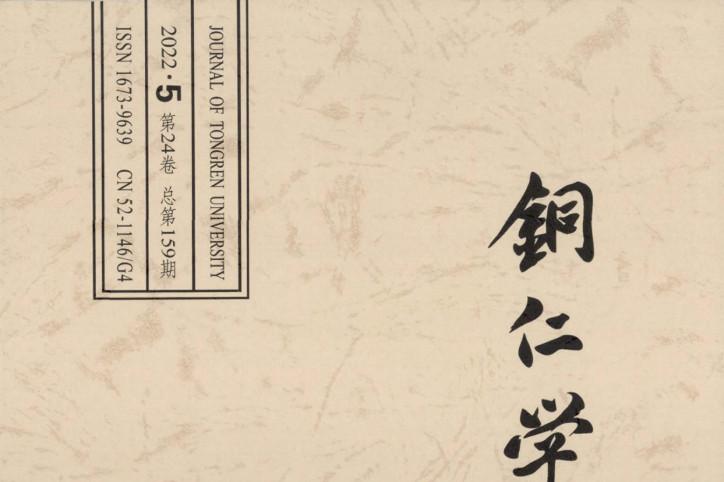 JOURNAL OF TONGREN UNIVERSITY
2022·5 第24卷 总第159期
ISSN 1673-9639 CN 52-1146/G4
銅仁学